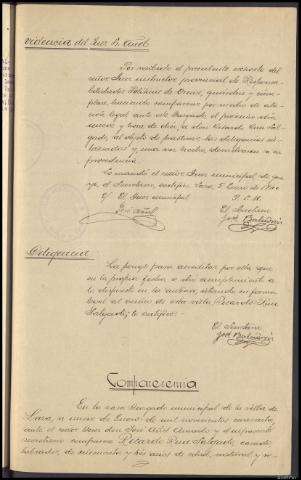 Providencia del Juez Sr. Añel
Por recibido el precedente exhorto del
señor Juez instructor provincial de Responsa-
bilidades Políticas de Orense, guárdese y cúm-
plase, haciendo comparecer por medio de cita-
ción legal ante este Juzgado, el próximo día
nueve y hora de once, a don Ricardo
Salgado, al objeto de practicar las diligencias in-
teresadas y, una vez hecho, devuélvase a su
procedencia
Lo mandó el señor Juez municipal de que
yo el Secretario, certifico. 5 Enero de 1940
El Juez municipal P. S. M.
El Secretario
José
Diligencia
La pongo para acreditar por ella que
en la propia fecha, se dio cumplimiento a
lo dispuesto en la anterior, citando en forma
legal al vecino de esta villa Ricardo
Salgado; lo certifico.-
El Secretario
José
Comparecencia
En la sala Juzgado municipal de la villa de
a nueve de Enero de mil novecientos cuarenta,
ante el señor Juez don José Añel y el infrascrito
secretario comparece Ricardo Salgado, casado,
labrador, de cincuenta y seis años de edad, natural y ve-